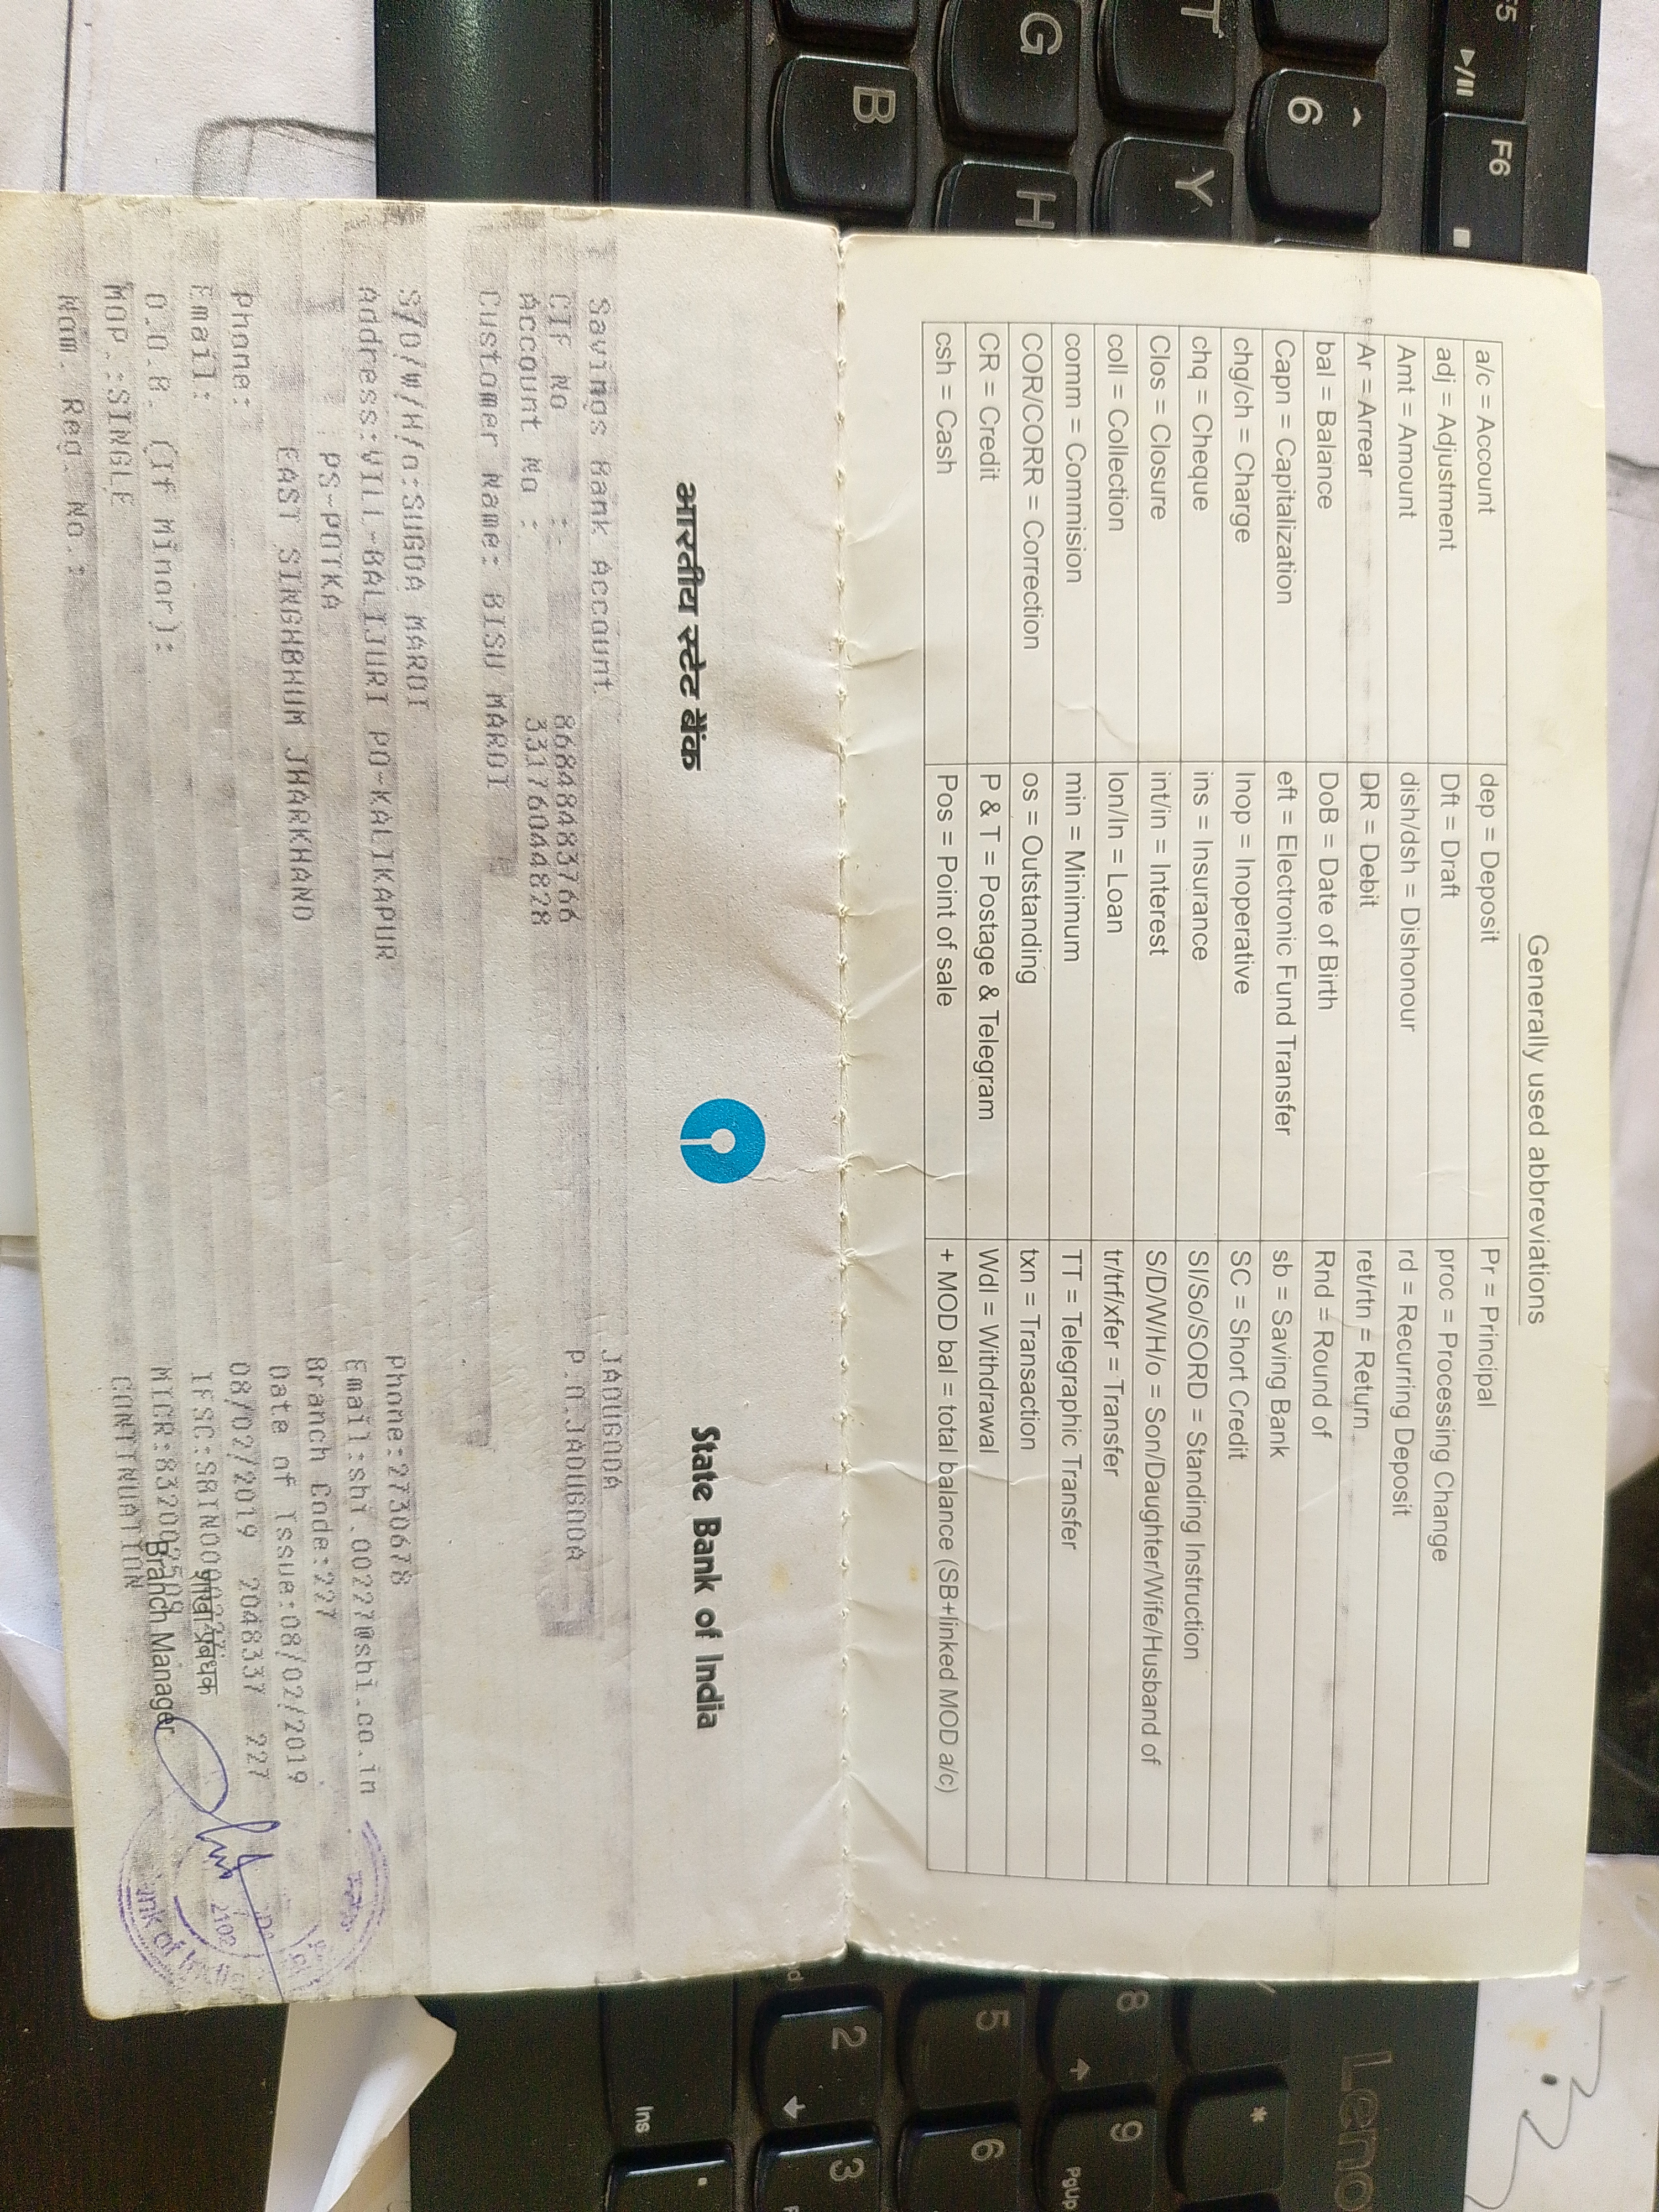 Generally used abbreviations
a/c = Account dep = Deposit Pr = Principal
adj = Adjustment Dft = Draft proc = Processing Change
Amt = Amount dish/dsh = Dishonour rd = Recurring Deposit
Ar = Arrear DR = Debit ret/rtn = Return
bal = Balance DoB = Date of Birth Rnd = Round of
Capn = Capitalization eft = Electronic Fund Transfer sb = Saving Bank
chg/ch = Charge Inop = Inoperative SC = Short Credit
chq = Cheque ins = Insurance SI/So/SORD = Standing Instruction
Clos = Closure int/in = Interest S/D/W/H/o = Son/Daughter/Wife/Husband of
coll = Collection lon/ln = Loan tr/trf/xfer = Transfer
comm = Commision min = Minimum TT = Telegraphic Transfer
COR/CORR = Correction os = Outstanding txn = Transaction
CR = Credit P & T = Postage & Telegram Wdl = Withdrawal
csh = Cash Pos = Point of sale + MOD bal = total balance (SB+linked MOD a/c)
भारतीय स्टेट बैंक State Bank of India
Savings Bank Account JADUGODA
CIF No : 86848483766 P.O.JADUGODA
Account No : 33176044828
Customer Name: BISU MARDI
S/D/W/H/o:SUGDA MARDI Phone:2730678
Address:VILL-BALIJURI PO-KALIKAPUR Email:sbi.00227@sbi.co.in
PS-POTKA Branch Code:227
EAST SINGHBHUM JHARKHAND Date of Issue:08/02/2019
Phone: 08/02/2019 2048337 227
Email: IFSC:SBIN0000227
शाखा प्रबंधक
D.O.B. (If Minor): MICR:832002509
Branch Manager
MOP.:SINGLE CONTINUATION
Nom. Reg. No.:
F5
F6
6
T
Y
G
H
B
Lenov
8
9
PgUp
5
6
2
3
Ins